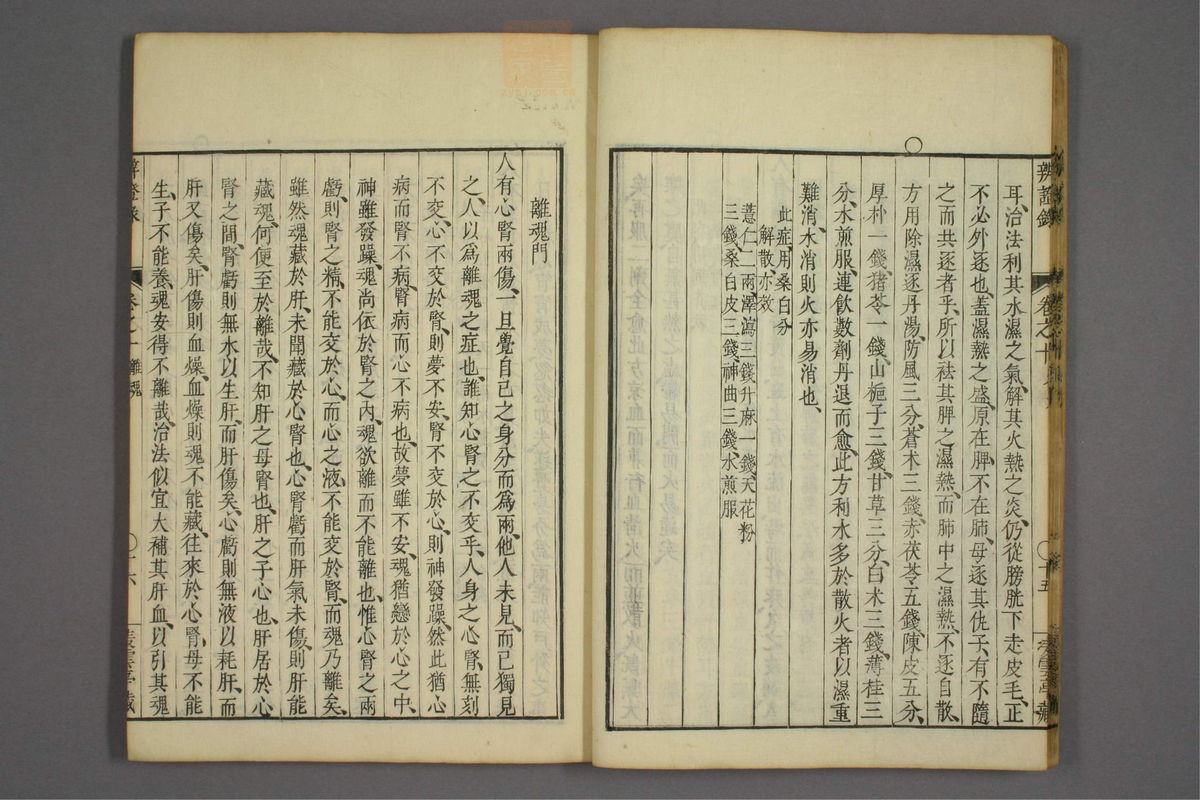 辨證錄　卷之十　十五
耳、治法利其水濕之氣、解其火熱之炎、仍從膀胱下走皮毛、正
不必外逐也、蓋濕熱之盛、原在脾、不在肺、母逐其仇、子有不隨
之而共逐者乎、所以祛其脾之濕熱、而肺中之濕熱、不逐自散、
方用除濕逐丹湯、防風三分、蒼朮三錢、赤茯苓五錢、陳皮五分、
厚朴一錢、猪苓一錢、山梔子三錢、甘草三分、白朮三錢、薄桂三
分、水煎服、連飲數劑、丹退而愈、此方利水多於散火者、以濕重
難消、水消則火亦易消也、
此症、用桑白分
解散、亦效
薏仁二兩澤瀉三錢升麻一錢天花粉
三錢、桑白皮三錢、神曲三錢、水煎服
離魂門
人有心腎兩傷、一旦覺自己之身、分而爲兩、他人未見、而己獨見
之、人以爲離魂之症也、誰知心腎之不交乎、人身之心腎、無刻
不交、心不交於腎、則夢不安、腎不交於心、則神發躁、然此猶心
病而腎不病、腎病而心不病也、故夢雖不安、魂猶戀於心之中、
神雖發躁、魂尚依於腎之内、魂欲離而不能離也、惟心腎之兩
虧、則腎之精、不能交於心、而心之液、不能交於腎、而魂乃離矣、
雖然魂藏於肝、未聞藏於心腎也、心腎虧而肝氣未傷、則肝能
藏魂、何便至於離哉、不知肝之母腎也、肝之子心也、肝居於心
腎之間、腎虧則無水以生肝、而肝傷矣、心虧則無液以耗肝、而
肝又傷矣、肝傷則血燥、血燥則魂不能藏、往來於心腎、母不能
生、子不能養、魂安得不離哉、治法似宜大補其肝血、以引其魂
卷之十　離魂　十六